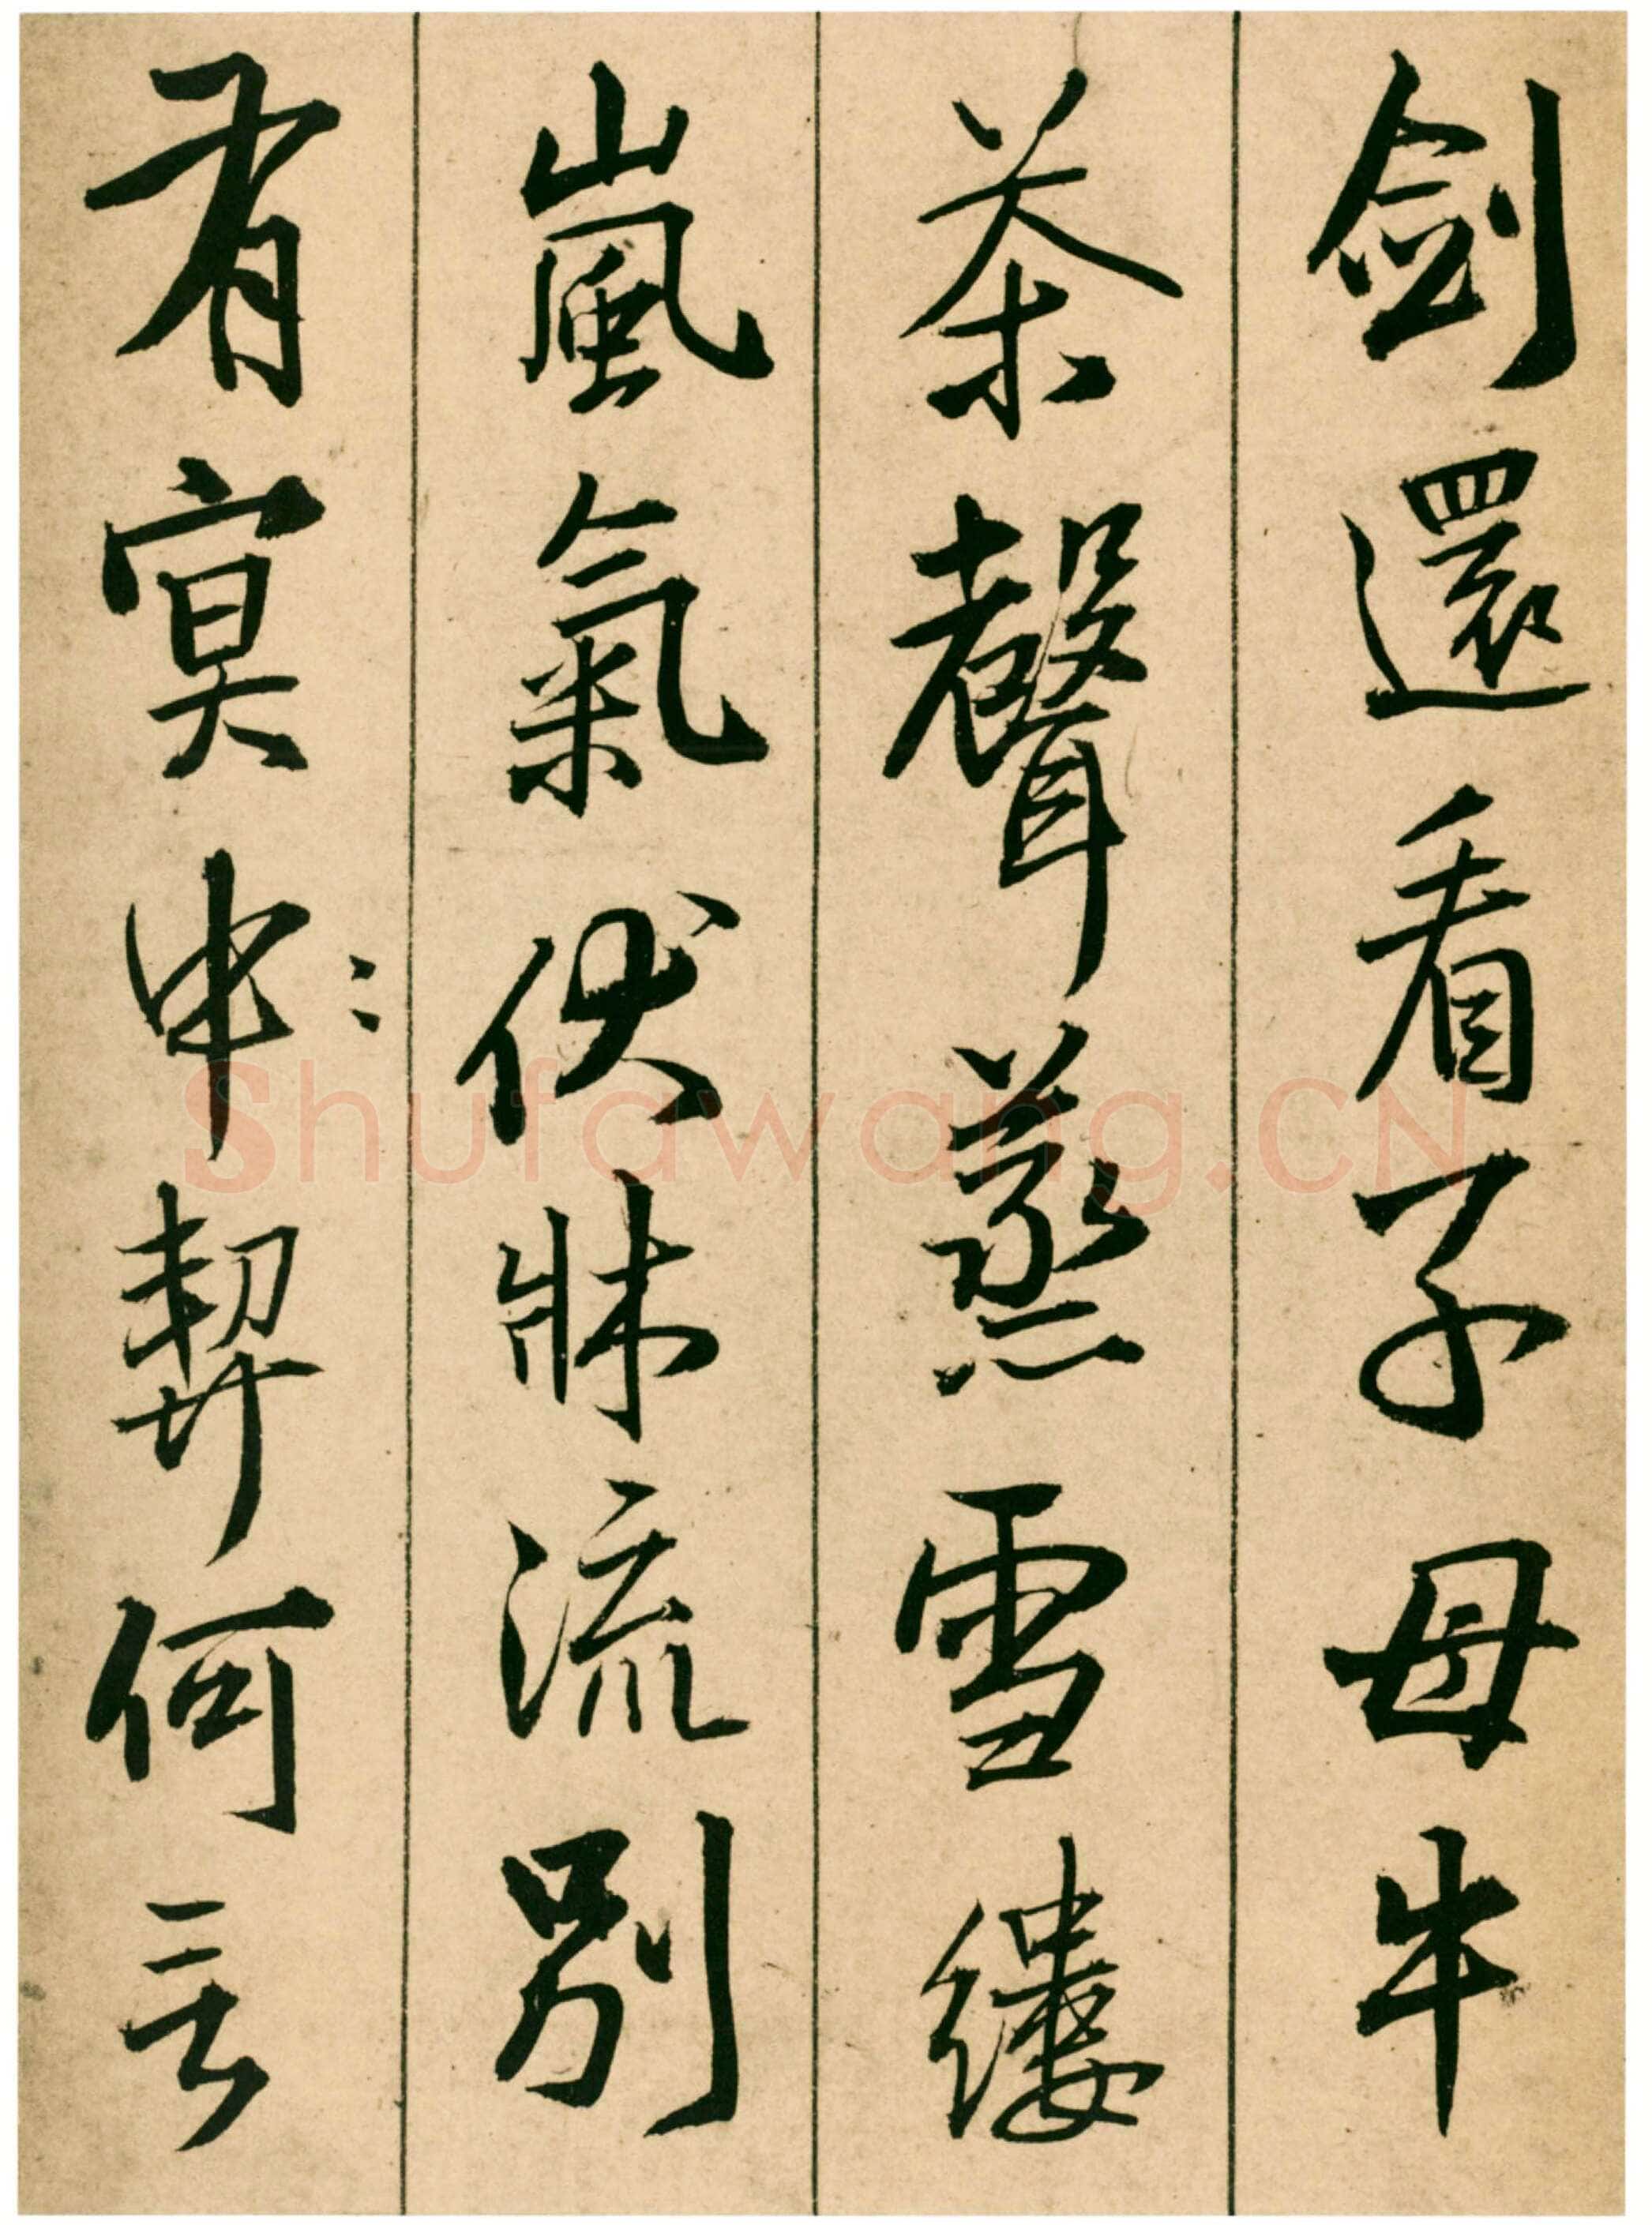 劍還看子母牛
茶聲蒸雪縷
嵐氣伏牀流別
有冥申〻契何言
Shufawang.CN